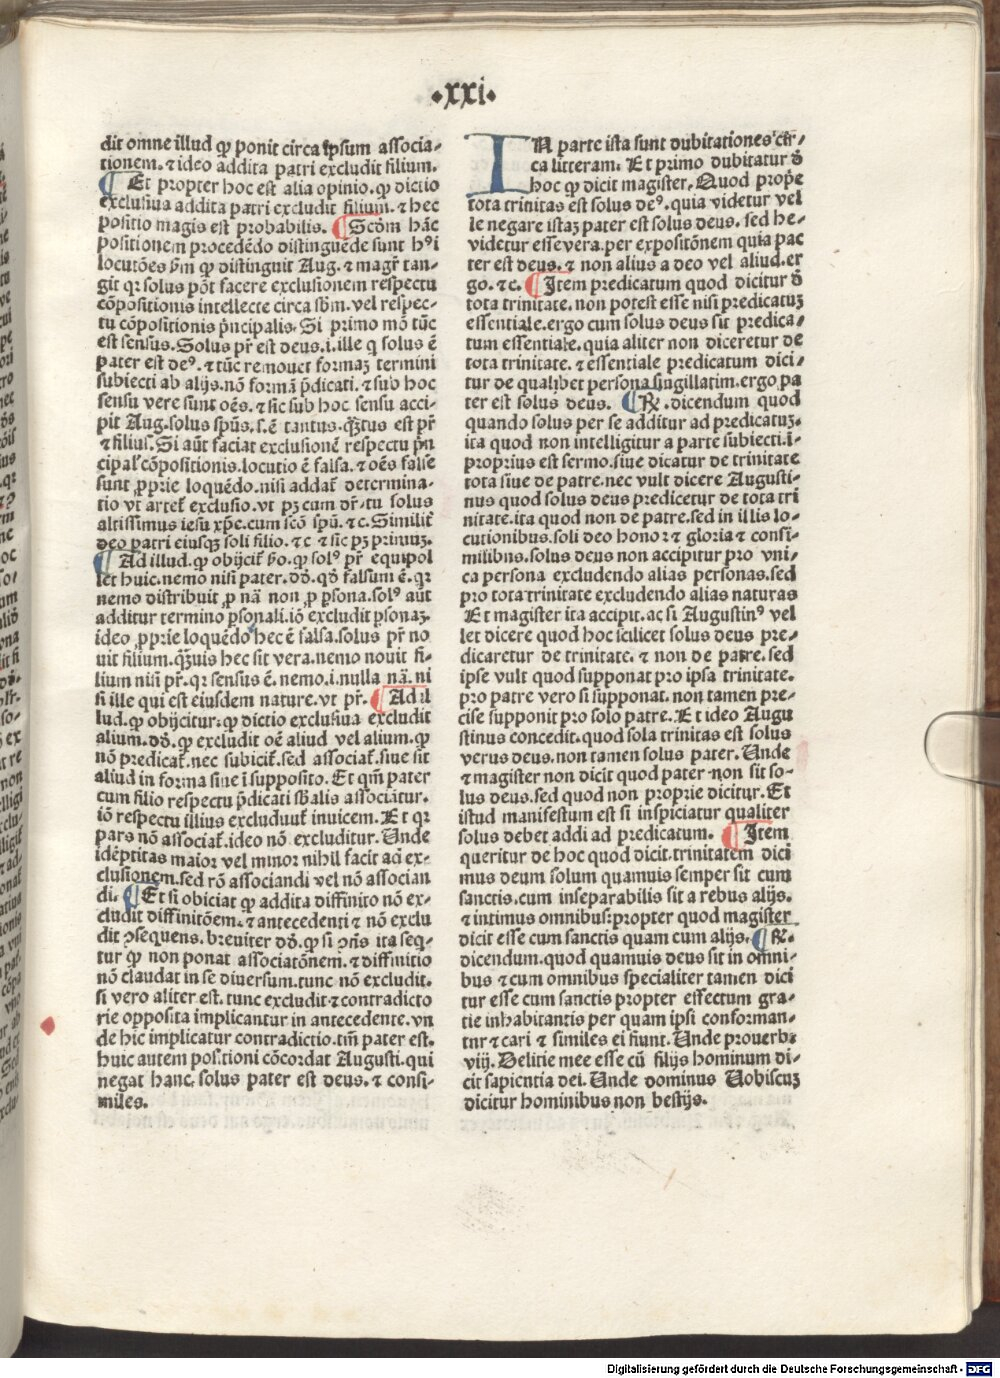 •xxi•
dit omne illud qꝙ ponit circa ipsum associa-
tionem. ⁊ ideo addita patri excludit filium.
¶ Et propter hoc est alia opinio. ꝙ dictio
exclusiua addita patri excludit filium. ⁊ hec
positio magis est probabilis. ¶ Scďm hāc
positionem procedēdo distinguēde sunt hꝰi
locutōes ẜm ꝙ distinguit Aug. ⁊ magr̄ tan-
git qꝛ solus pōt facere exclusionem respectu
cōpositionis intellecte circa sbm̄. vel respec-
tu cōpositionis p̄ncipalis. Si primo mō tūc
est sensus. Solus pr̄ est deus. i. ille q solus ē
pater est deꝰ. ⁊ tūc remouet formaꝫ termini
subiecti ab alijs. nō formā p̄dicati. ⁊ sub hoc
sensu vere sunt oēs. ⁊ sic sub hoc sensu acci-
pit Aug. solus spūs. s. ē tantus. qꝫtus est pr̄
⁊ filius. Si aūt faciat exclusionē respectu p̄n
cipal' cōpositionis. locutio ē falsa. ⁊ oēs false
sunt ꝓprie loquēdo. nisi addat̄ determina-
tio vt artet̄ exclusio. vt pꝫ cum dr̄. tu solus
altissimus iesu xp̄e. cum scō spū. ⁊ c. Similit̄
deo patri eiusqꝫ soli filio. ⁊ c ⁊ sic pꝫ primuꝫ.
¶ Ad illud. ꝙ obijcit̄ ꝟo. ꝙ solꝰ pr̄ equipol
let huic. nemo nisi pater. dō. qd̄ falsum ē. qꝛ
nemo distribuit ꝓ nā non ꝓ ꝑsona. solꝰ aūt
additur termino ꝑsonali. iō excludit ꝑsonaꝫ.
ideo ꝓprie loquēdo hec ē falsa. solus pr̄ no
uit filium. qꝫuis hec sit vera. nemo nouit fi-
lium nisi pr̄. qꝛ sensus ē. nemo. i. nulla nā. ni
si ille qui est eiusdem nature. vt pr̄. ¶ Ad il
lud. ꝙ obijcitur. ꝙ dictio exclusiua excludit
alium. dō. ꝙ excludit oē aliud vel alium. ꝙ
nō predicat̄. nec subicit̄. sed associat̄. siue sit
aliud in forma siue ī supposito. Et qm̄ pater
cum filio respectu p̄dicati sb̄alis associātur.
iō respectu illius excluduut̄ inuicem. Et qꝛ
pars nō associat̄. ideo nō excluditur. Unde
idēptitas maior vel minor nihil facit ad ex-
clusionem. sed rō associandi vel nō associan
di. ¶ Et si obiciat ꝙ addita diffinito nō ex-
cludit diffinitōem. ⁊ antecedenti ⁊ nō exclu
dit ꝯsequens. breuiter dō. ꝙ si ꝯn̄s ita seq̄-
tur ꝙ non ponat associatōnem. ⁊ diffinitio
nō claudat in se diuersum. tunc nō excludit.
si vero aliter est. tunc excludit ⁊ contradicto
rie opposita implicantur in antecedente. vn
de hic implicatur contradictio. tm̄ pater est.
huic autem positioni cōcordat Augusti. qui
negat hanc. solus pater est deus. ⁊ consi-
miles.
IN parte ista sunt dubitationes cir-
ca litteram. Et primo dubitatur ď
hoc ꝙ dicit magister. Quod prope
tota trinitas est solus deꝰ. quia videtur vel
le negare istaꝫ pater est solus deus. sed he-
videtur esse vera. per expositōnem quia pac
ter est deus. ⁊ non alius a deo vel aliud. er
go. ⁊ c. ¶ Item predicatum quod dicitur ď
tota trinitate. non potest esse nisi predicatuꝫ
essentiale. ergo cum solus deus sit predica-
tum essentiale. quia aliter non diceretur de
tota trinitate. ⁊ essentiale predicatum dici-
tur de qualibet persona singillatim. ergo pa
ter est solus deus. ¶ R̄. dicendum quod
quando solus per se additur ad predicatuꝫ.
ita quod non intelligitur a parte subiecti. ī-
proprius est sermo. siue dicatur de trinitate
tota siue de patre. nec vult dicere Augusti-
nus quod solus deus predicetur de tota tri
nitate. ita quod non de patre. sed in illis lo-
cutionibus. soli deo honor ⁊ gloria ⁊ consi-
milibus. solus deus non accipitur pro vni-
ca persona excludendo alias personas. sed
pro tota trinitate excludendo alias naturas
Et magister ita accipit. ac si Augustinꝰ vel
let dicere quod hoc scilicet solus deus pre-
dicaretur de trinitate. ⁊ non de patre. sed
ipse vult quod supponat pro ipsa trinitate.
pro patre vero si supponat. non tamen pre-
cise supponit pro solo patre. Et ideo Augu
stinus concedit. quod sola trinitas est solus
verus deus. non tamen solus pater. Unde
⁊ magister non dicit quod pater non sit so-
lus deus. sed quod non proprie dicitur. Et
istud manifestum est si inspiciatur qualiter
solus debet addi ad predicatum. ¶ Item
queritur de hoc quod dicit. trinitatem dici
mus deum solum quamuis semper sit cum
sanctis. cum inseparabilis sit a rebus alijs.
⁊ intimus omnibus: propter quod magister
dicit esse cum sanctis quam cum alijs. ¶ R̄.
dicendum. quod quamuis deus sit in omni-
bus ⁊ cum omnibus specialiter tamen dici
tur esse cum sanctis propter effectum gra-
tie inhabitantis per quam ipsi conforman-
tur ⁊ cari ⁊ similes ei fiunt. Unde prouerb.
viij. Delitie mee esse cū filijs hominum di-
cit sapientia dei. Unde dominus Uobiscuꝫ
dicitur hominibus non bestijs.
Digitalisierung gefördert durch die Deutsche Forschungsgemeinschaft - DFG